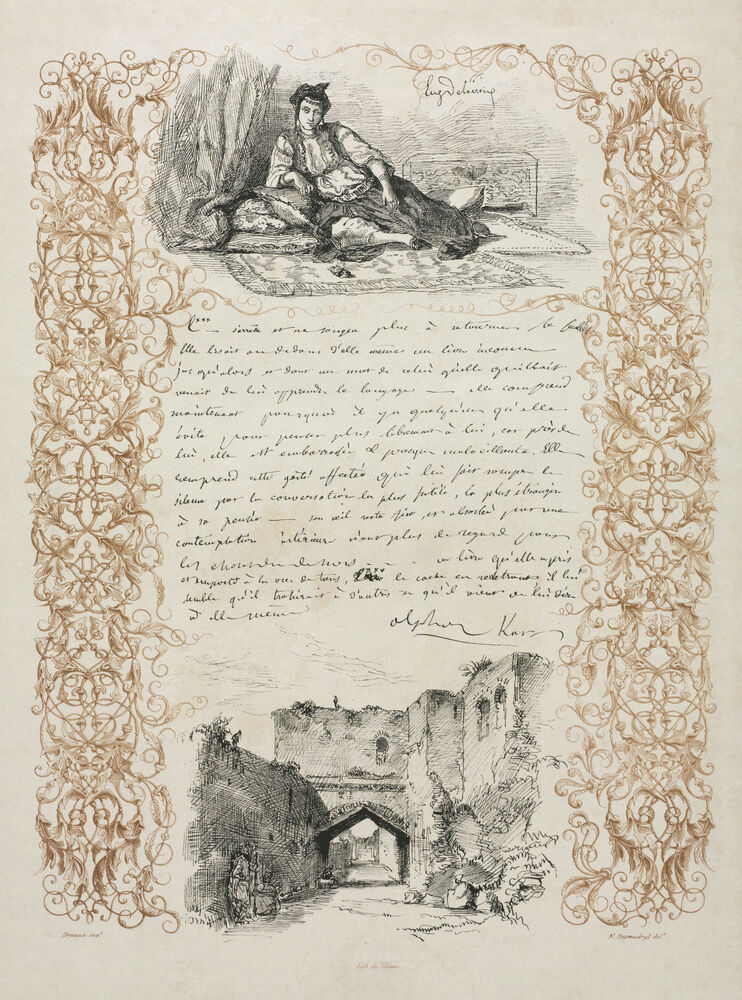 Eug Delacroix
L*** s'arrête et ne songea plus à retourner le feuillet
Elle lisait au dedans d'elle même un livre inconnu
jusqu'alors et dont un mot de celui qu'elle quittait
venait de lui apprendre le langage — elle comprend
maintenant pourquoi il y a quelqu'un qu'elle
évite pour penser plus librement à lui, car près de
lui, elle est embarrassée & presque malveillante. Elle
comprend cette gaité affectée qui lui fait rompre le
silence par la conversation la plus futile, la plus étrangère
à sa pensée — son œil reste fixe, et absorbé par une
contemplation intérieure n'ont plus de regard pour
les choses du dehors — un livre qu'elle a pris
et emporté à la vue de tous, L*** le cache en rentrant il lui
semble qu'il trahirait à d'autres ce qu'il vient de lui dire
à elle même
Alphonse Karr
Lith. de Villain